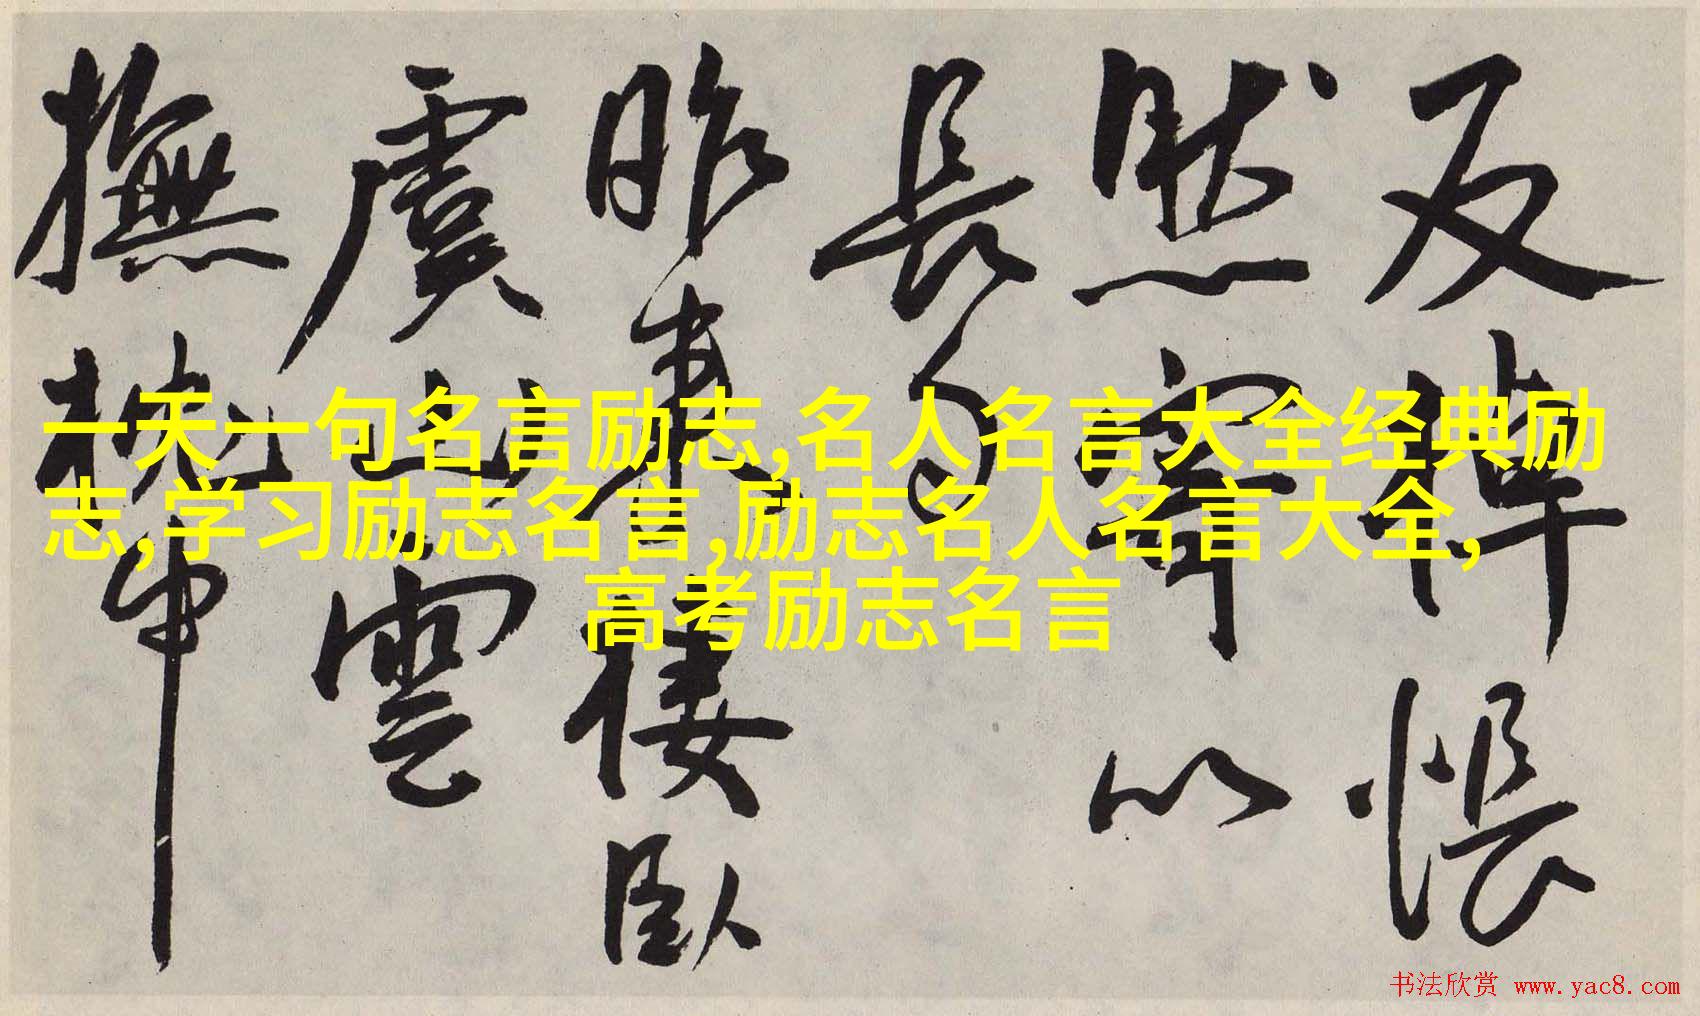 反棹悵
然以
長句
昨來樓臥
虞山雲
撫枕
一天一句名言励志,名人名言大全经典励
志,学习励志名言,励志名人名言大全,
高考励志名言
书法欣赏 www.yac8.com